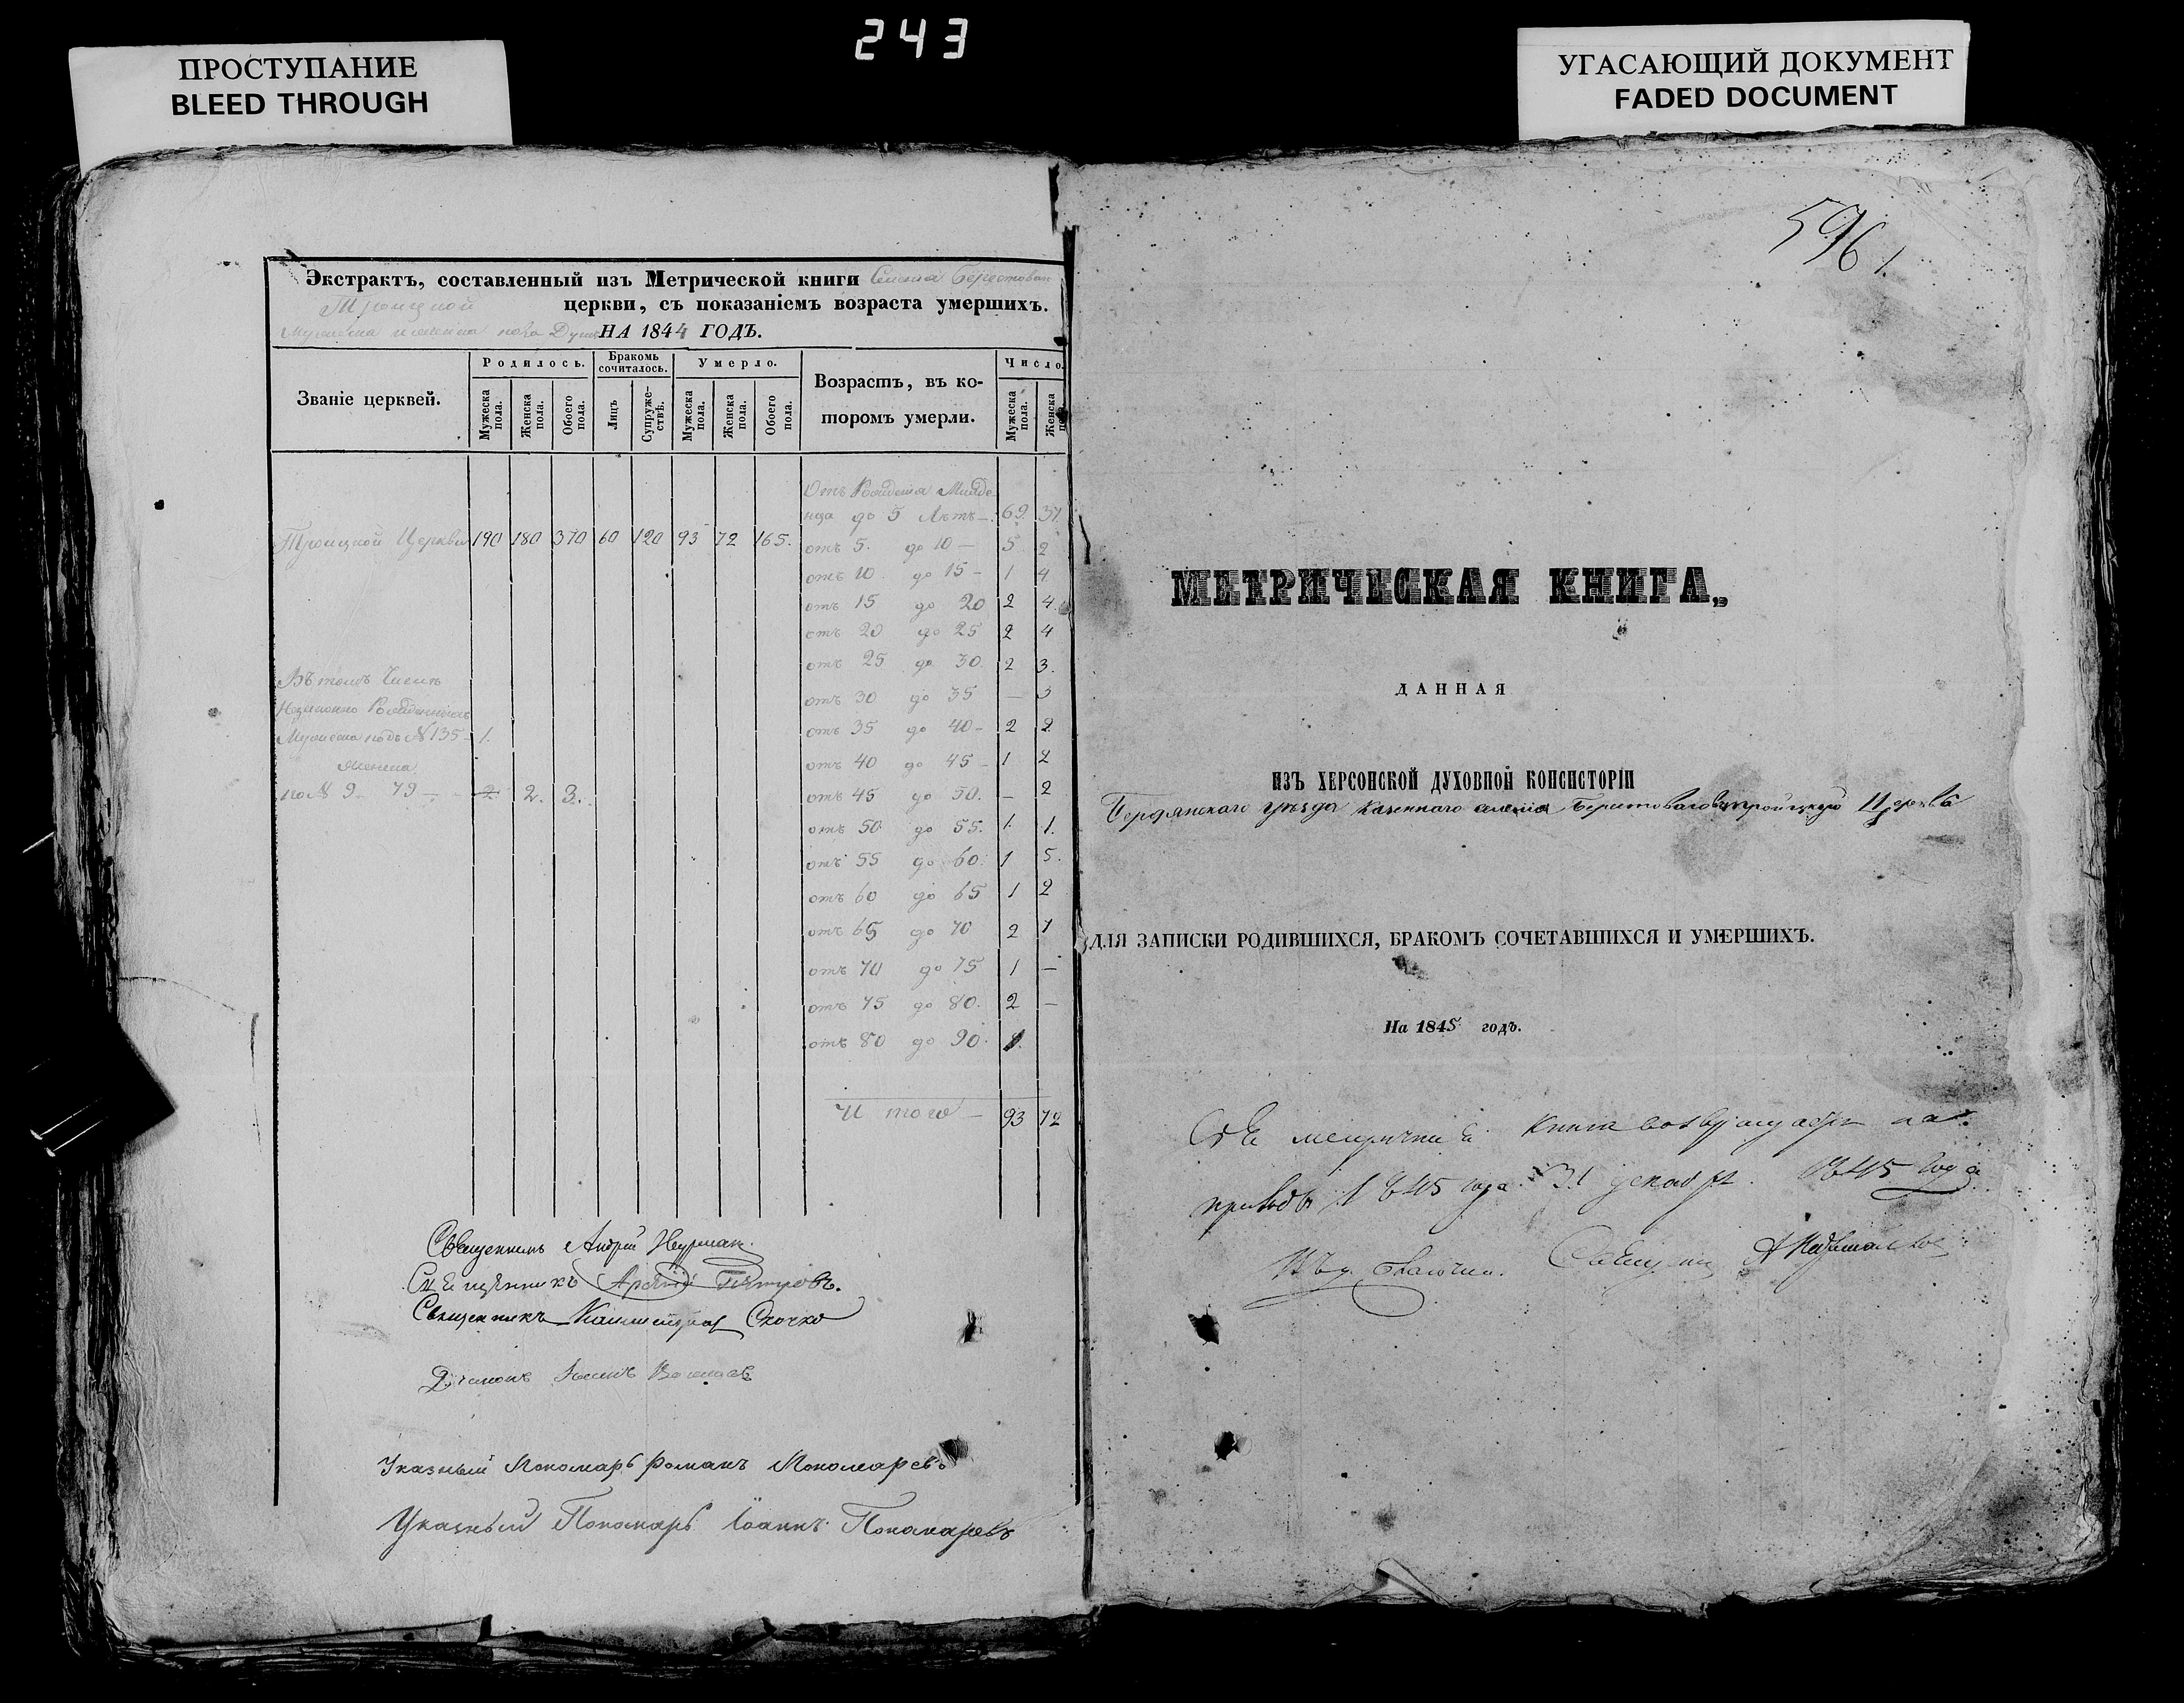 243
ПРОСТУПАНИЕ
BLEED THROUGH
УГАСАЮЩИЙ ДОКУМЕНТ
FADED DOCUMENT
Экстрактъ, составленный изъ Метрической книги Селенія Берестоваго
Троицкой церкви, съ показаніемъ возраста умершихъ.
Мужеска и женска пола Душъ НА 1844 ГОДЪ.
Званіе церквей.
Родилось.
Бракомъ сочиталось.
Умерло.
Возрастъ, въ которомъ умерли.
Число.
Мужеска пола.
Женска пола.
Обоего пола.
Лицъ
Супружествъ.
Мужеска пола.
Женска пола.
Обоего пола.
Мужеска пола.
Женска
Троицкой Церкви 190 180 370 60 120 93 72 165.
Отъ Рожденія Младе
нца до 5 Летъ — 69 37
отъ 5. до 10 — 5 2
отъ 10 до 15 — 1 4
отъ 15 до 20 2 4
отъ 20 до 25 2 4
отъ 25 до 30. 2 3.
отъ 30 до 35 — 3
отъ 35 до 40 — 2 2
отъ 40 до 45 — 1 2
отъ 45 до 50. — 2
отъ 50 до 55. 1. 1.
отъ 55 до 60. 1 5.
отъ 60 до 65 1 2
отъ 65 до 70 2 1
отъ 70 до 75 1 —
отъ 75 до 80. 2 —
отъ 80 до 90.
Итого — 93 72
Въ томъ Числѣ
Незаконно Рожденныхъ
Мужеска подъ № 135 — 1.
Женска
по № 9 — 79 — 2. 3.
Священникъ Андрей
Священникъ Арсеній Петровъ.
Священникъ Скочко
Діаконъ
Указный Пономарь Романъ Пономаревъ
Указный Пономарь Іоаннъ Пономаревъ
596
МЕТРИЧЕСКАЯ КНИГА,
ДАННАЯ
ИЗЪ ХЕРСОНСКОЙ ДУХОВНОЙ КОНСИСТОРІИ
Бердянскаго уѣзда Казеннаго селенія Берестоваго въ Троицкую Церковь
ДЛЯ ЗАПИСКИ РОДИВШИХСЯ, БРАКОМЪ СОЧЕТАВШИХСЯ И УМЕРШИХЪ.
На 1845 годъ.
книга
1845 года 31 декабря 1845 года